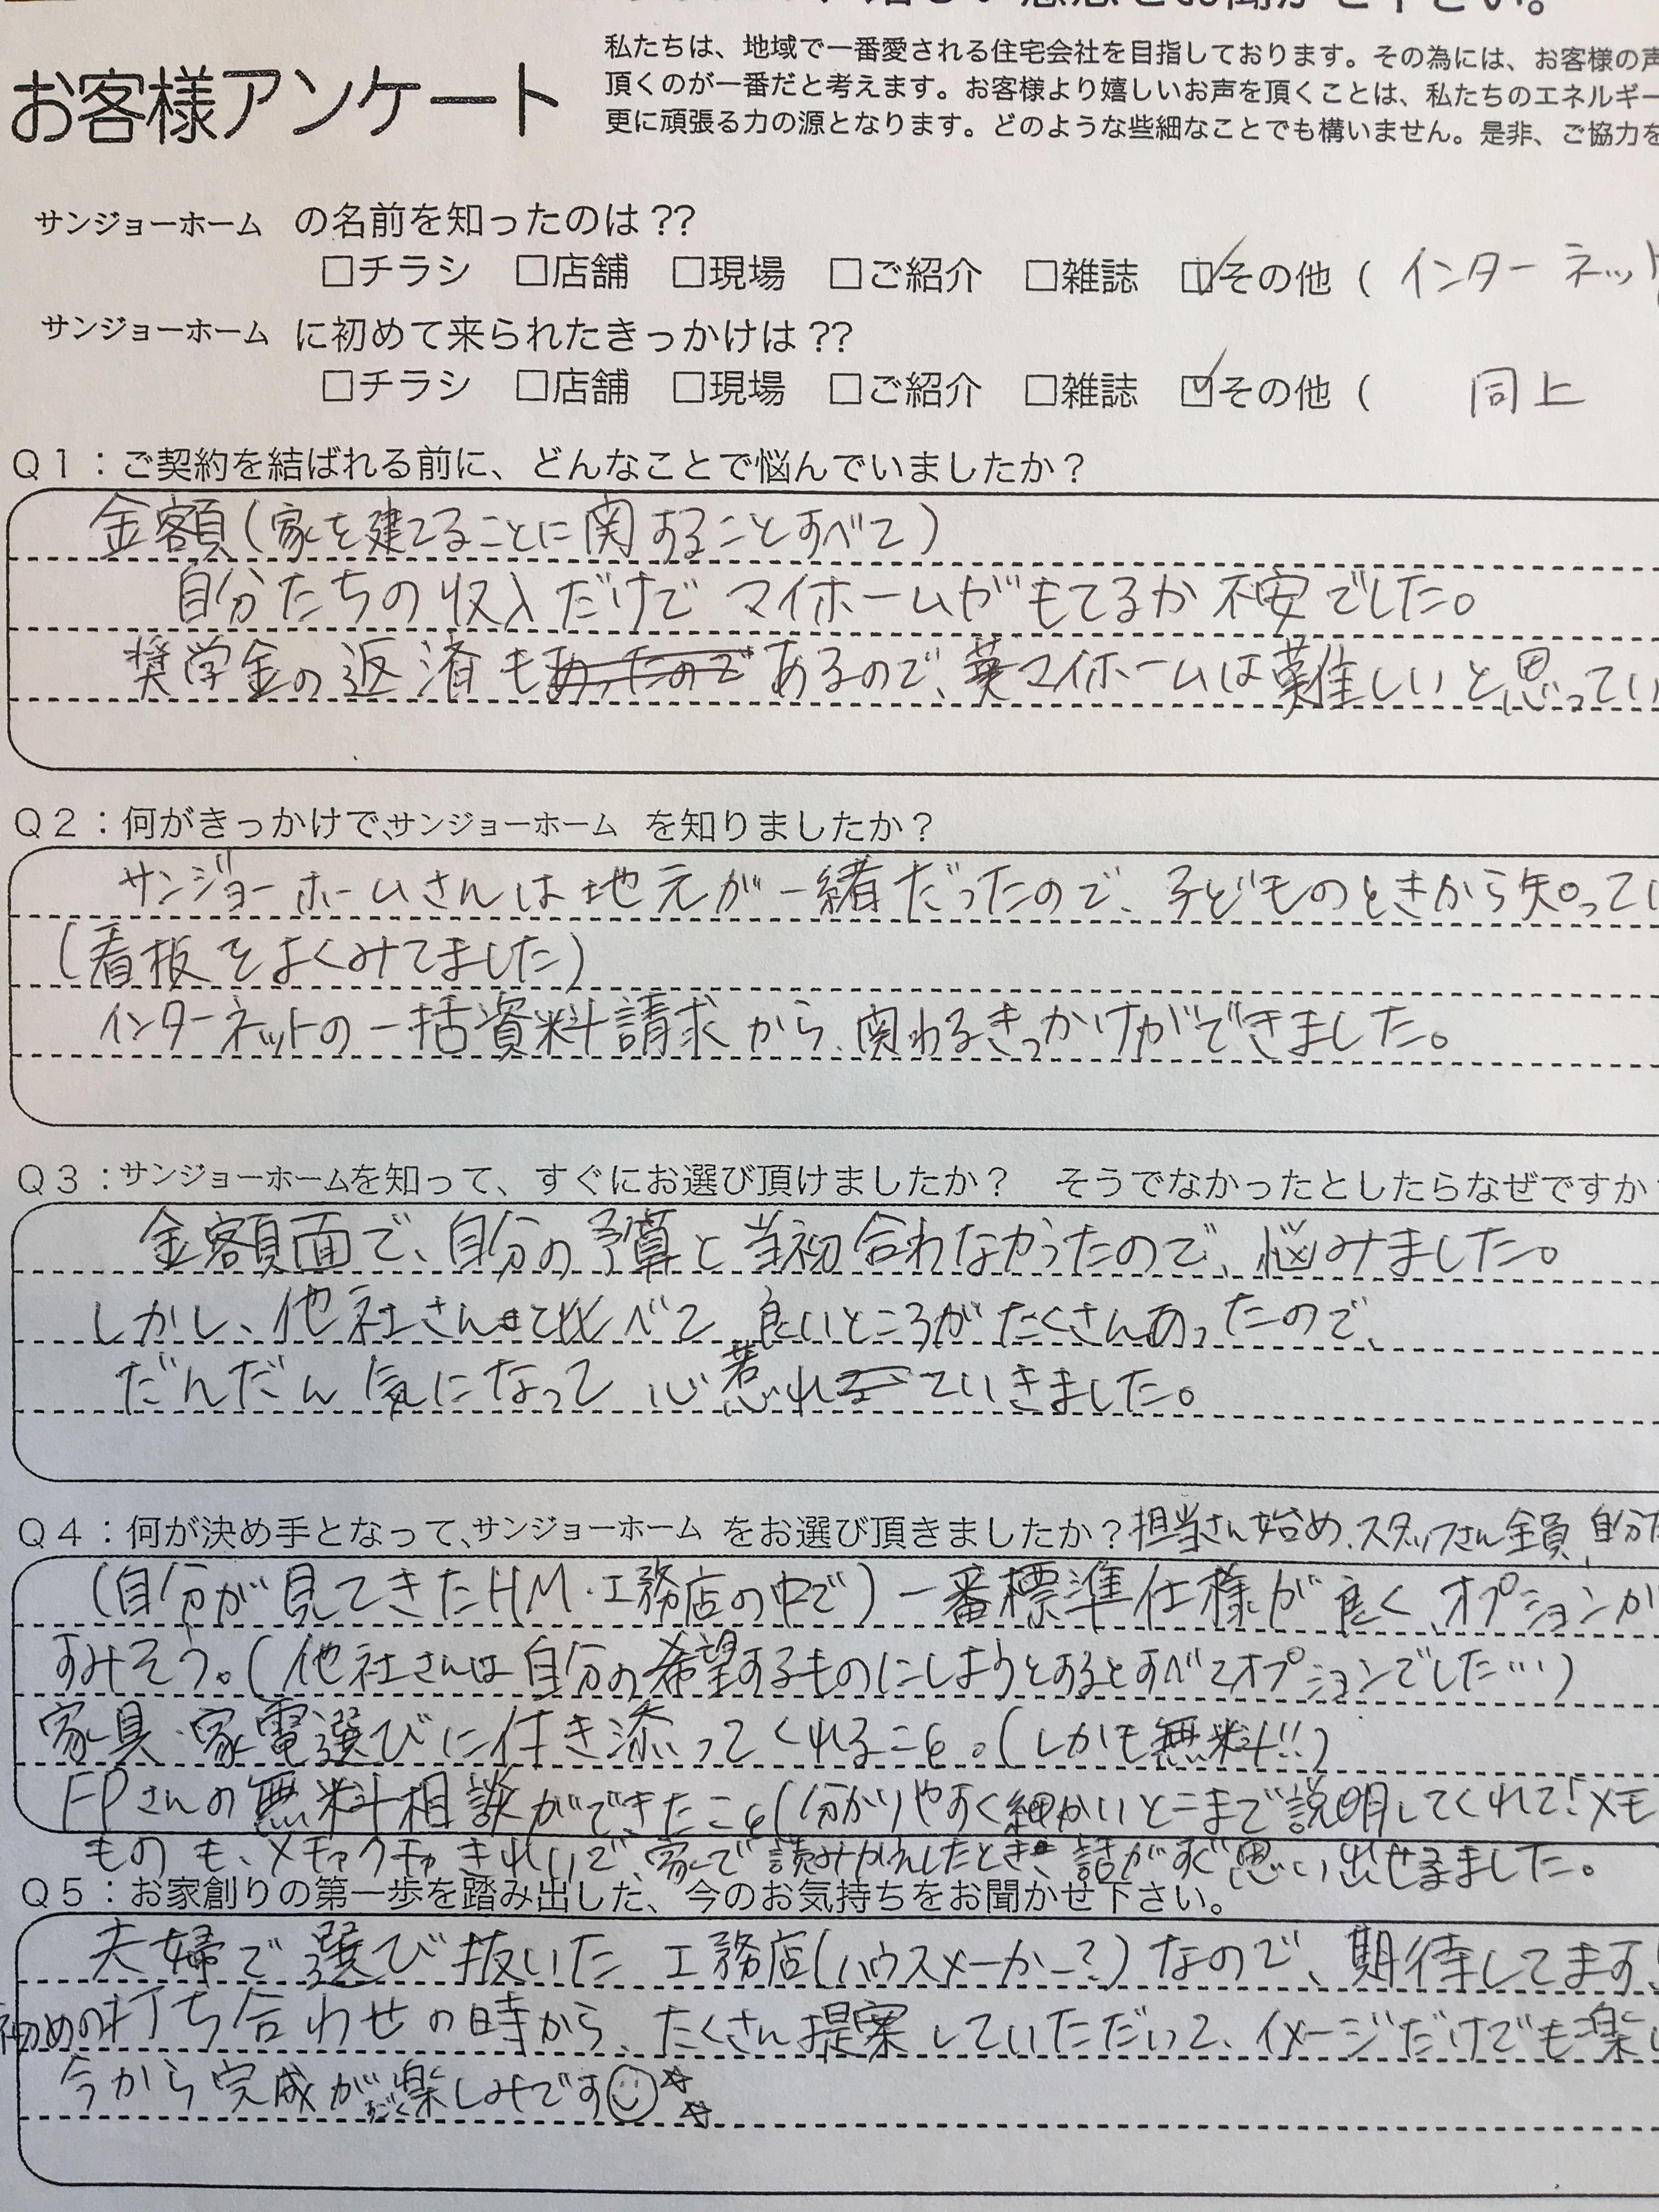 お客様アンケート
私たちは、地域で一番愛される住宅会社を目指しております。その為には、お客様の声
頂くのが一番だと考えます。お客様より嬉しいお声を頂くことは、私たちのエネルギー
更に頑張る力の源となります。どのような些細なことでも構いません。是非、ご協力を
サンジョーホーム の名前を知ったのは??
□チラシ □店舗 □現場 □ご紹介 □雑誌 ☑その他 ( インターネット
サンジョーホーム に初めて来られたきっかけは??
□チラシ □店舗 □現場 □ご紹介 □雑誌 ☑その他 ( 同上
Q1:ご契約を結ばれる前に、どんなことで悩んでいましたか?
金額(家を建てることに関することすべて)
自分たちの収入だけで マイホームがもてるか 不安でした。
奨学金の返済も あるので、マイホームは難しいと思ってい
Q2:何がきっかけで、サンジョーホーム を知りましたか?
サンジョーホームさんは地元が一緒だったので、子どものときから知ってい
(看板をよくみてました)
インターネットの一括資料請求から、関わるきっかけができました。
Q3:サンジョーホームを知って、すぐにお選び頂けましたか? そうでなかったとしたらなぜですか
金額面で、自分の予算と当初合わなかったので、悩みました。
しかし、他社さんと比べて 良いところがたくさんあったので、
だんだん気になって 心惹れていきました。
Q4:何が決め手となって、サンジョーホーム をお選び頂きましたか?
担当さん始め、スタッフさん全員、自分た
(自分が見てきたHM・工務店の中で)一番標準仕様が良く、オプションが
すみそう。(他社さんは自分の希望するものにしようとするとすべてオプションでした…)
家具・家電選びに付き添ってくれること。(しかも無料!!)
FPさんの無料相談ができたこと(分かりやすく細かいとこまで説明してくれて!メモ
ものも、メチャクチャきれいで、家で読みかえしたとき、話がすぐ思い出せました。
Q5:お家創りの第一歩を踏み出した、今のお気持ちをお聞かせ下さい。
夫婦で選び抜いた 工務店(ハウスメーカー?)なので、期待してます!
初めの打ち合わせの時から、たくさん提案していただいて、イメージだけでも楽し
今から完成がすごく楽しみです